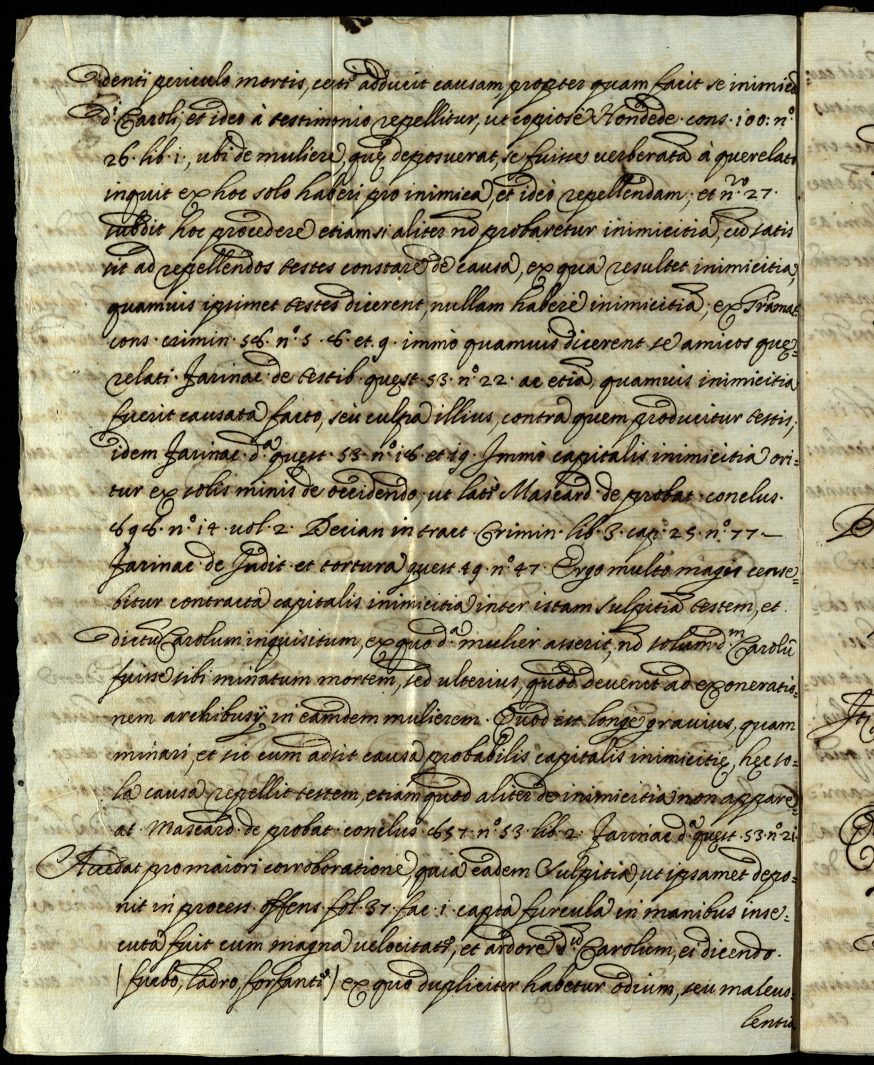 denti periculo mortis, certè adducit causam propter quam facit se inimicã
dⁱ Caroli, et ideo à testimonio repellitur, ut copiosè Hondede. cons. 100: n.º
26. lib. 1., ubi de muliere, quę deposuerat, se fuisse verberatã à querelato
inquit ex hoc solo haberi pro inimica, et ideò repellendam; et n.º 27.
subdit hoc procedere etiamsi aliter nõ probaretur inimicitia, cũ satis
sit ad repellendos testes constare de causa, ex qua resultet inimicitia,
quamuis ipsimet testes dicerent, nullam habere inimicitiã; ex Gramat.
cons. crimin. 56. n.º 5. 6. et. 9. immò quamuis dicerent se amicos que=
relati. Farinac. de testib. quęst. 53. n.º 22. ac etiã, quamuis inimicitia
fuerit causata facto, seu culpa illius, contra quem producitur testis,
idem Farinac. dª. quęst. 53. n.º 18. et 19. Immò capitalis inimicitia ori=
tur ex solis minis de occidendo, ut latè Mascard. de probat. conclus.
696. n.º 14. vol. 2. Decian in tract. Crimin. lib. 3. cap: 25. n.º 77 —
Farinac. de Judit. et tortura quęst. 49. n.º 47. Ergo multo magis cense=
bitur contracta capitalis inimicitia inter istam Sulpitiã testem, et
dictũ Carolum inquisitum, ex quo dª. mulier asserit, nõ solùm dᵐ Carolũ
fuisse sibi minatum mortem, sed ulterius, quòd devenit ad exoneratio=
nem archibusij in eamdem mulierem. Quod est longè gravius, quam
minari, et sic cum adsit causa probabilis capitalis inimicitię, hęc so=
la causa repellit testem, etiam quod aliter de inimicitia non appare=
at. Mascard. de probat. conclus. 657. n.º 53. lib. 2. Farinac. dª. quęst. 53. n.º 21.
Accedat pro maiori corroboratione, quia eadem Sulpitia, ut ipsamet depo=
nit in process. offens. fol. 37. fac. 1. capta furcula in manibus inse=
cuta fuit cum magna velocitate, et ardore dᵘ Carolum, ei dicendo.
(fuebo, ladro, forfante) ex quo dupliciter habetur odium, seu malevo=
lentia